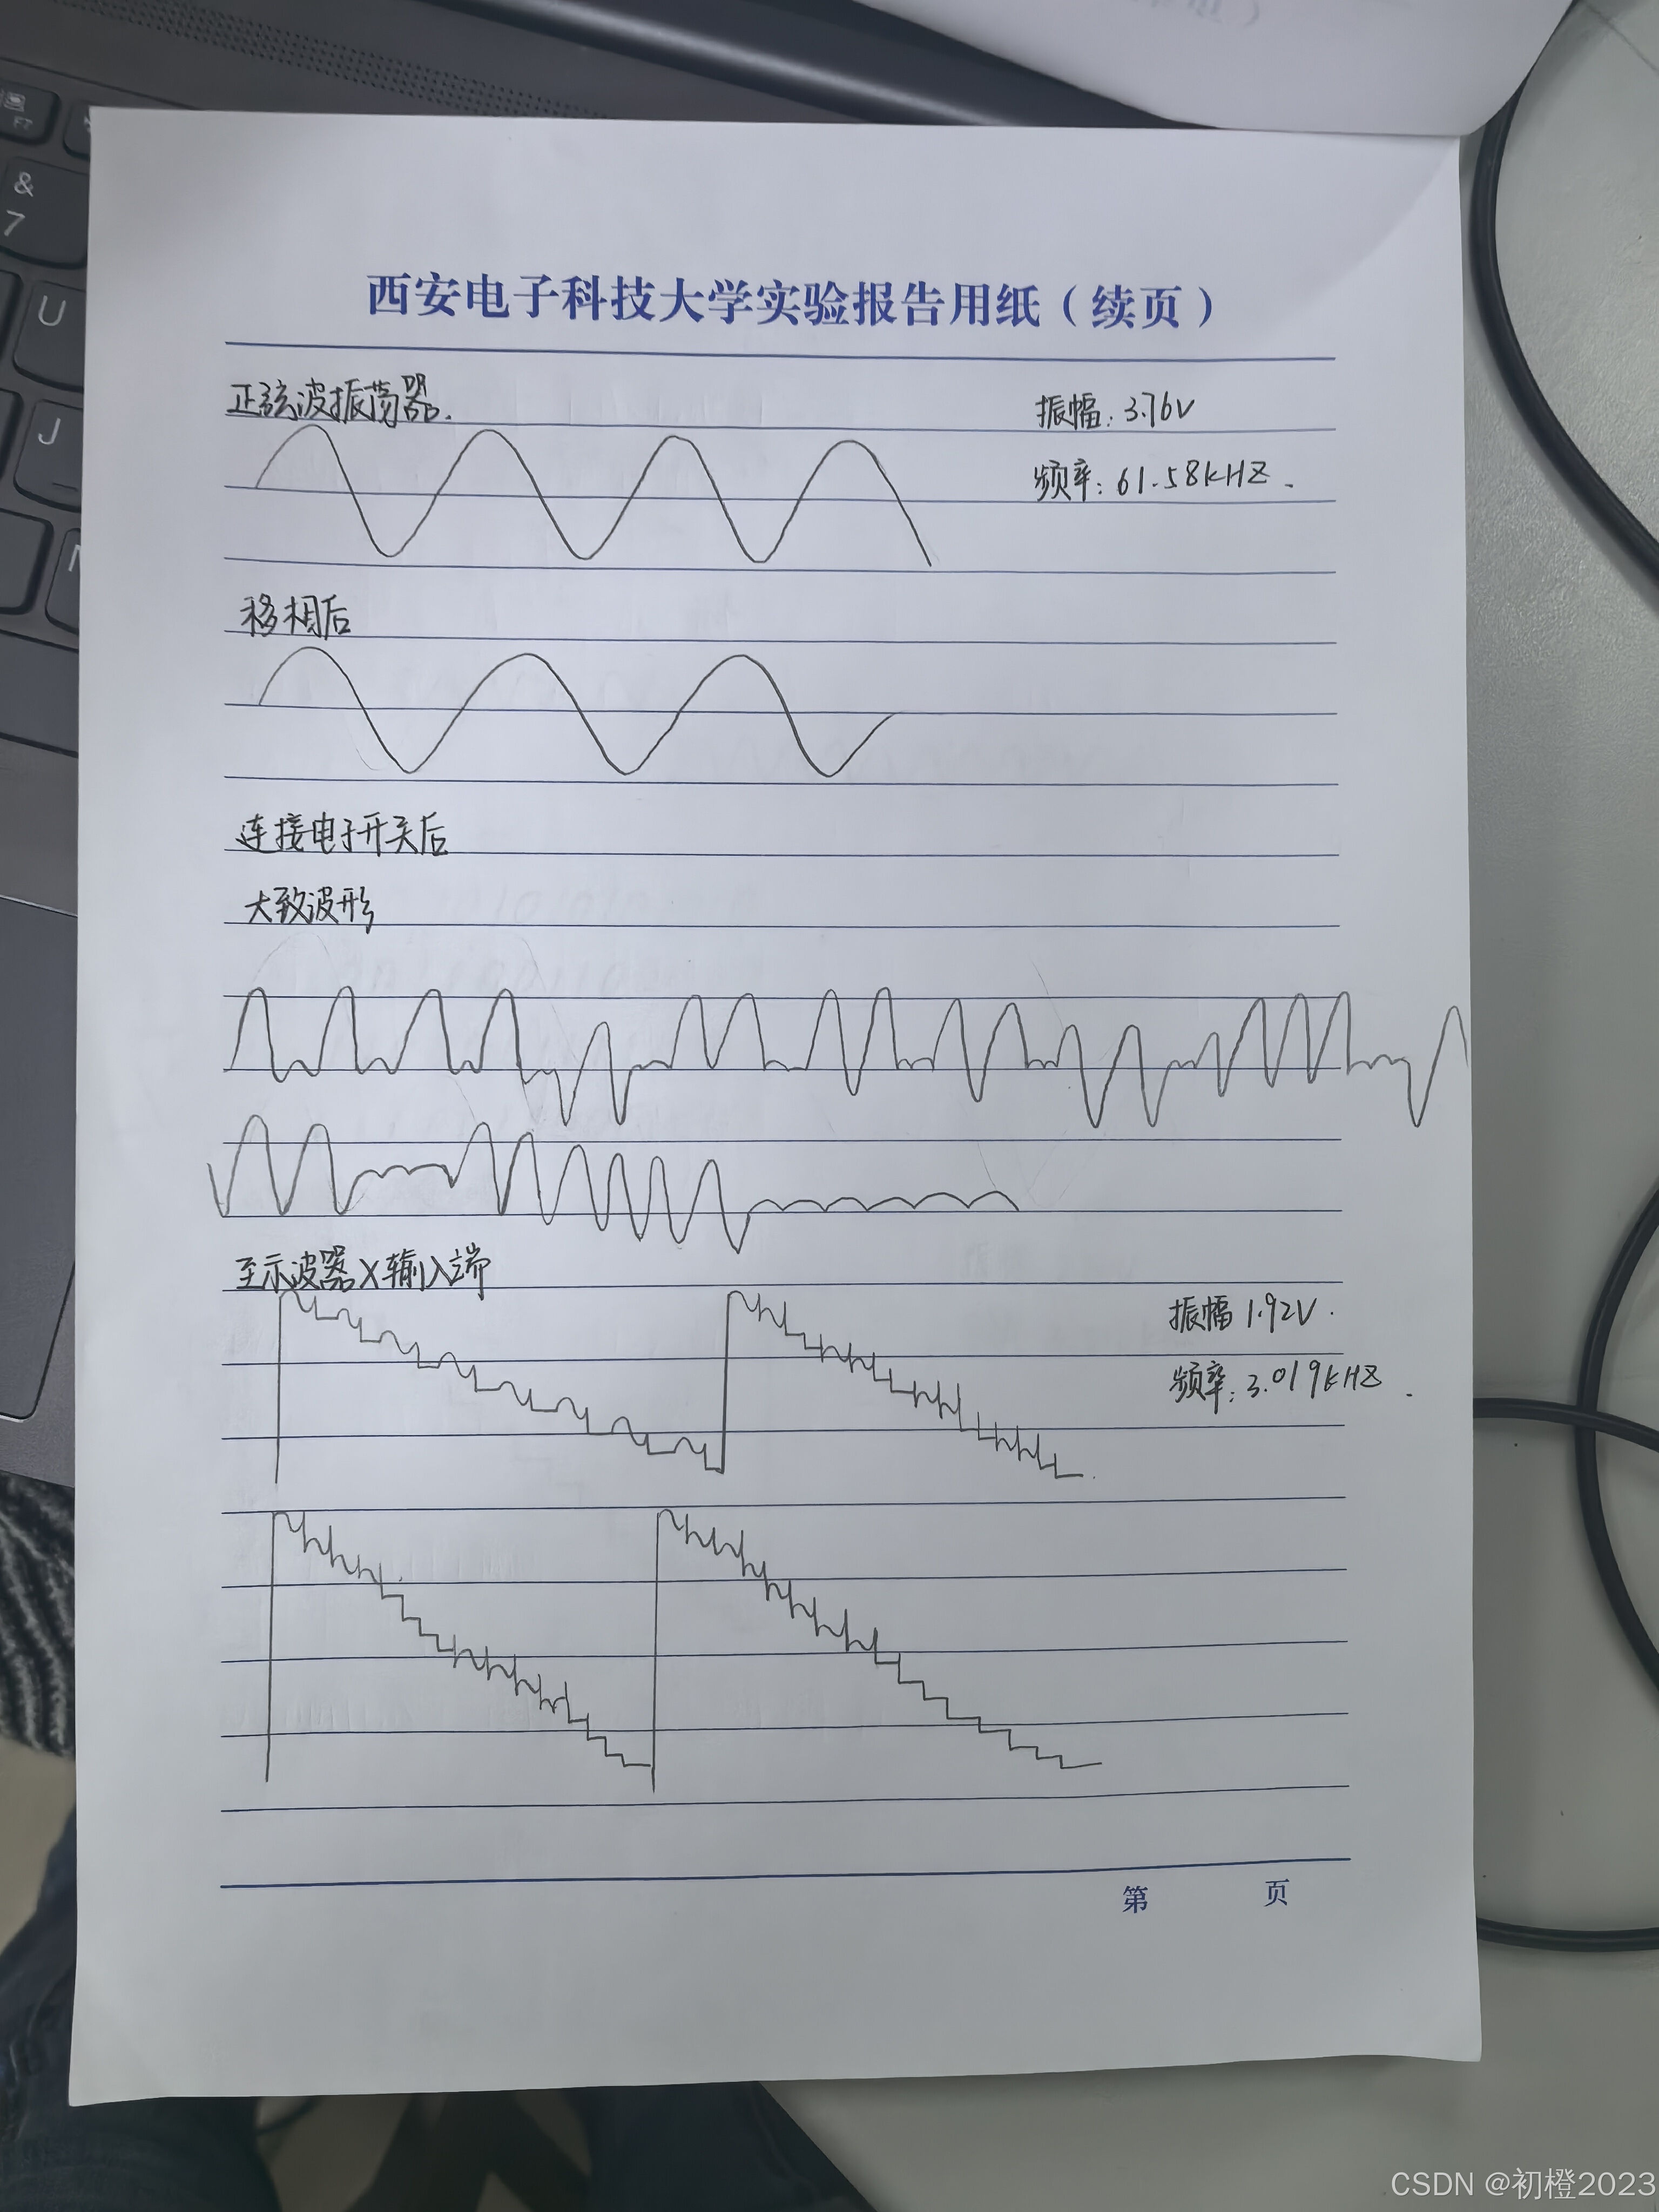 &
7
U
J
西安电子科技大学实验报告用纸(续页)
正弦波振荡器.
振幅:3.76V
频率:61.58kHZ.
移相后
连接电子开关后
大致波形
至示波器X输入端
振幅 1.92V.
频率:3.019kHZ.
第 页
CSDN @初橙2023